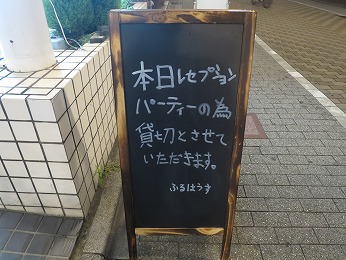 本日レセプション
パーティーの為
貸切とさせて
いただきます。
ふるはうす